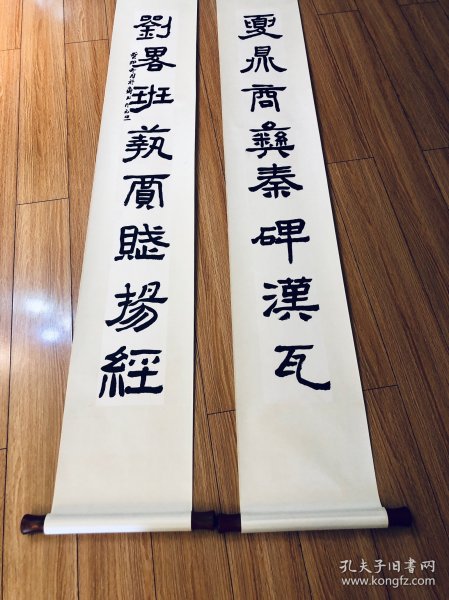 夏鼎商彝秦碑漢瓦
劉畧班藝賈賦揚經
孔夫子旧书网
www.kongfz.com